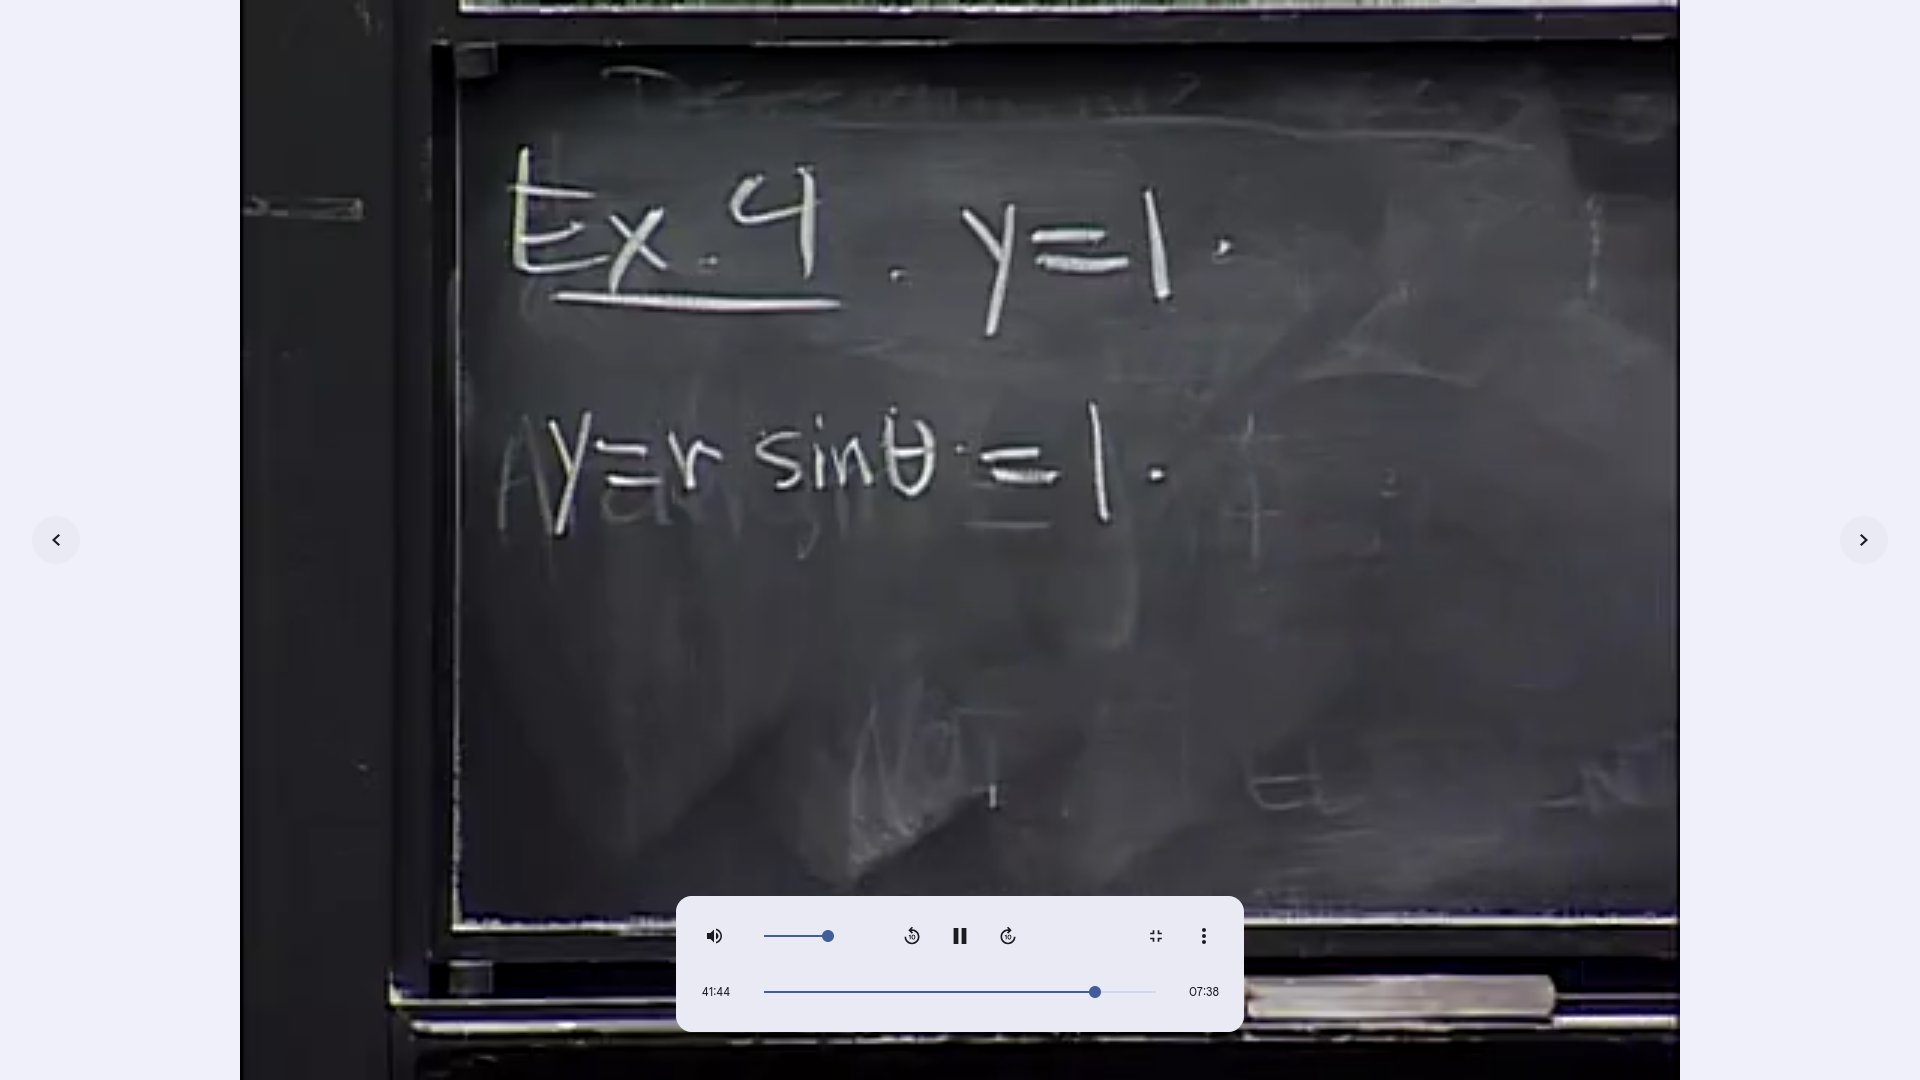 Ex. 4. y=1.
y=r sinθ = 1.
41:44
07:38